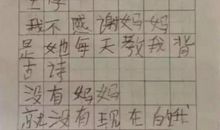 我不感谢妈妈
是她每天教我背
古诗
没有妈妈
就没有现在的我